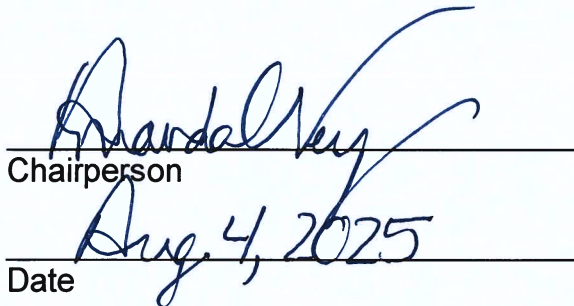 Chairperson
Aug. 4, 2025
Date